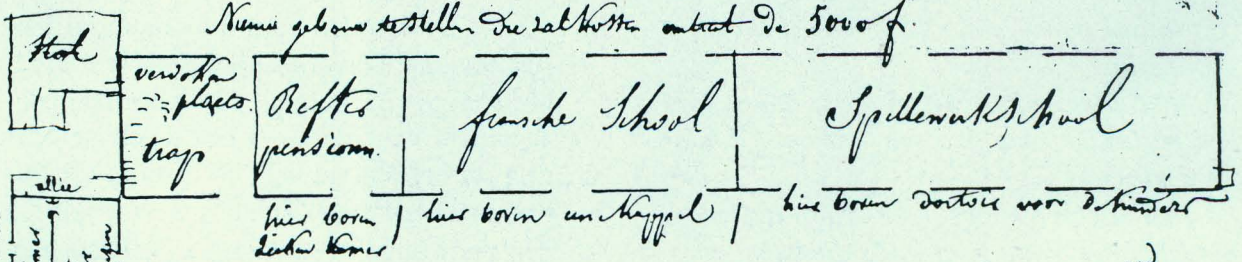 Nieuw gebouw te stellen die zal kosten omtrent de 5000 f.
Stal
verdoken
plaets
trap
Refter
pensionn.
fransche School
Spellewerkschool
allie
hier boven
zieken kamer
hier boven een Kappel
hier boven dortoir voor de kinders